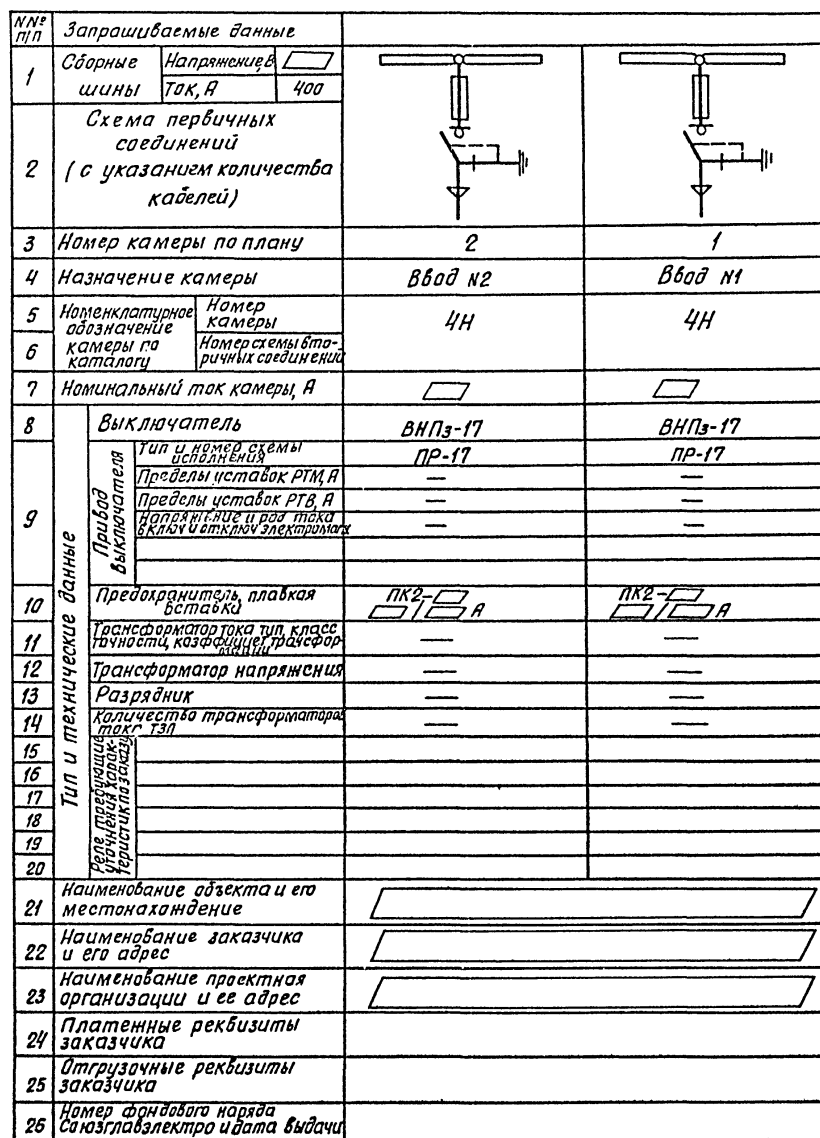 NNº п/п Запрашиваемые данные
1 Сборные шины Напряжение, В
Ток, А 400
2 Схема первичных
соединений
(с указанием количества
кабелей)
3 Номер камеры по плану 2 1
4 Назначение камеры Ввод N2 Ввод N1
5 Номенклатурное обозначение камеры по каталогу Номер камеры 4Н 4Н
6 Номер схемы вторичных соединений
7 Номинальный ток камеры, А
Тип и технические данные
8 Выключатель ВНПз-17 ВНПз-17
9 Привод выключателя
Тип и номер схемы исполнения ПР-17 ПР-17
Пределы уставок РТМ, А — —
Пределы уставок РТВ, А — —
Напряжение и род тока включ и отключ электромагн — —
10 Предохранитель, плавкая вставка ПК2- / А ПК2- / А
11 Трансформатор тока тип, класс точности, коэффициет трансформации — —
12 Трансформатор напряжения — —
13 Разрядник — —
14 Количество трансформаторов тока ТЗЛ — —
Реле, требующие уточнения характеристик по заказу
15
16
17
18
19
20
21 Наименование объекта и его
местонахождение
22 Наименование заказчика
и его адрес
23 Наименование проектная
организации и ее адрес
24 Платежные реквизиты
заказчика
25 Отгрузочные реквизиты
заказчика
26 Номер фондового наряда
Союзглавэлектро и дата выдачи